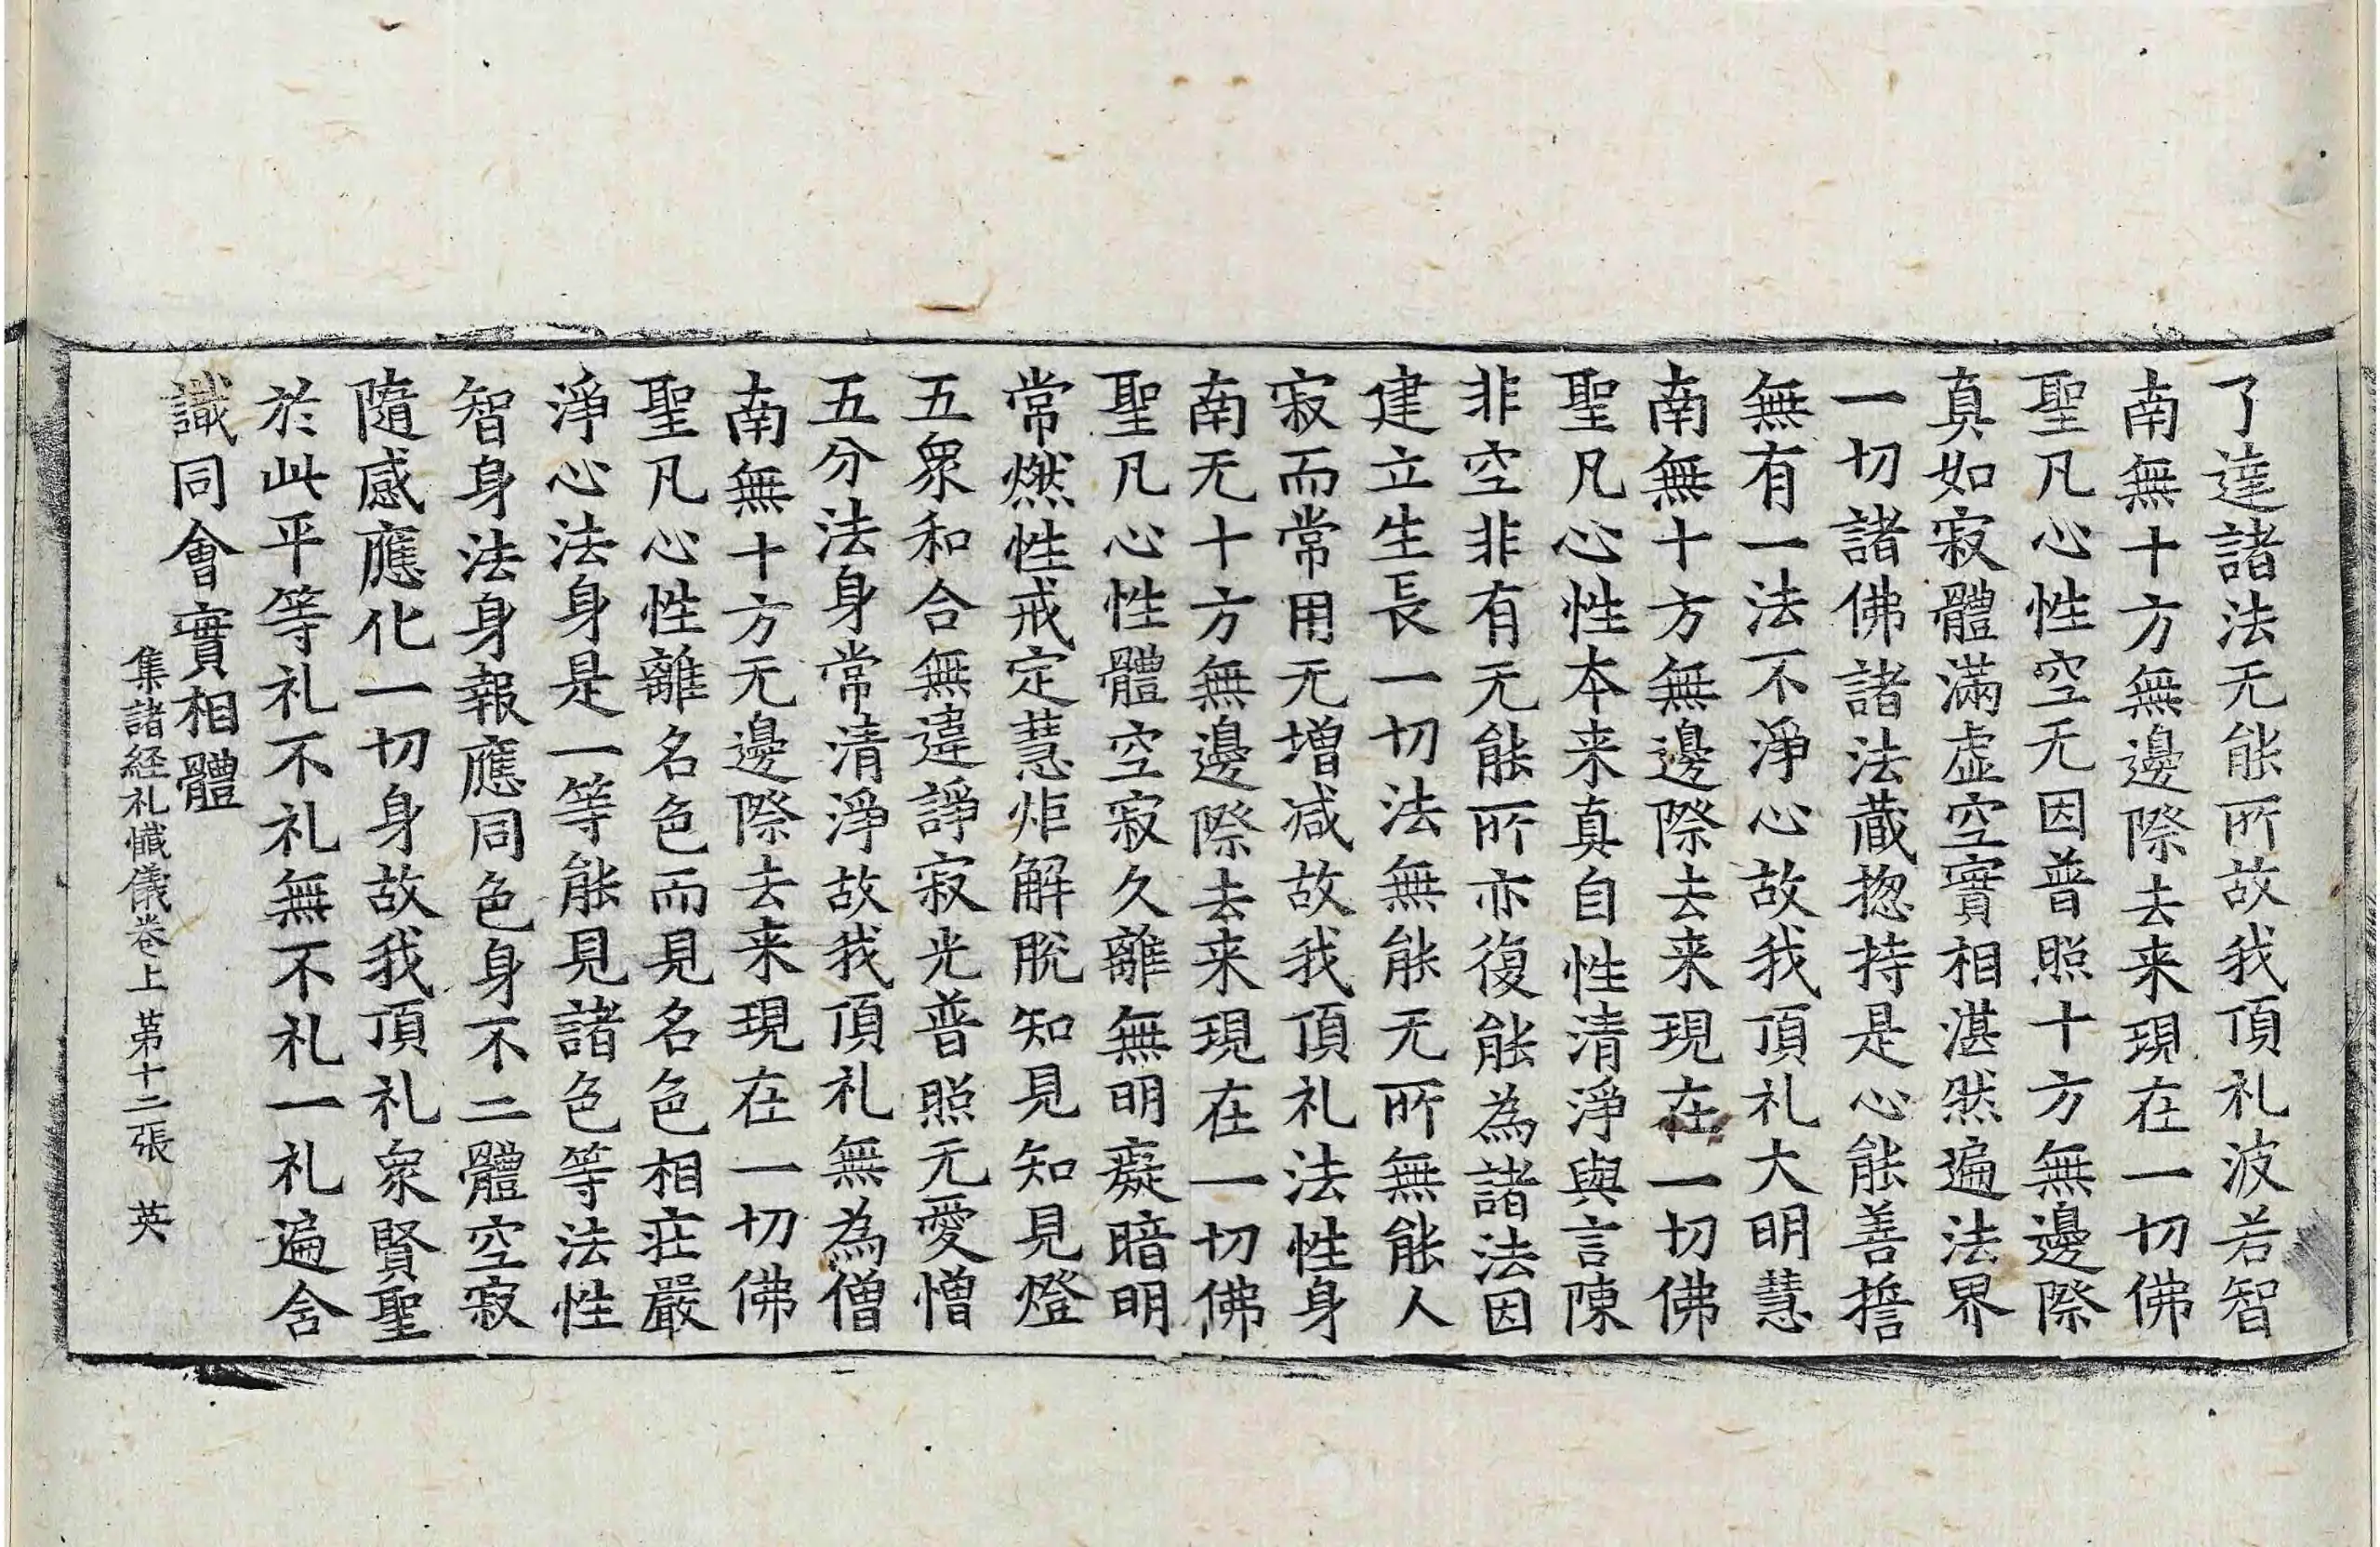 了達諸法无能所故我頂礼波若智
南無十方無邊際去来現在一切佛
聖凡心性空无因普照十方無邊際
真如寂體滿虚空實相湛然遍法界
一切諸佛諸法蔵揔持是心能善擔
無有一法不淨心故我頂礼大明慧
南無十方無邊際去来現在一切佛
聖凡心性本来真自性清淨與言陳
非空非有无能所亦復能為諸法因
建立生長一切法無能无所無能人
寂而常用无增减故我頂礼法性身
南无十方無邊際去来現在一切佛
聖凡心性體空寂久離無明癡暗明
常燃性戒定慧炬解脫知見知見燈
五衆和合無違諍寂光普照无愛憎
五分法身常清淨故我頂礼無為僧
南無十方无邊際去来現在一切佛
聖凡心性離名色而見名色相荘嚴
淨心法身是一等能見諸色等法性
智身法身報應同色身不二體空寂
隨感應化一切身故我頂礼衆賢聖
於此平等礼不礼無不礼一礼遍含
識同會實相體
集諸経礼懺儀卷上 苐十二張 英